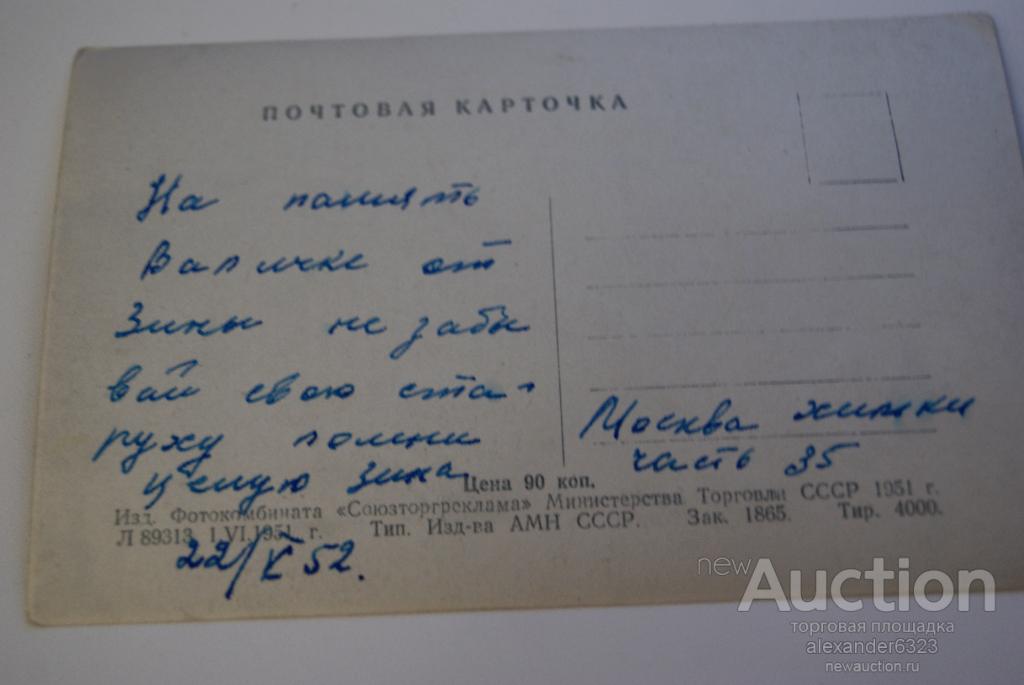 ПОЧТОВАЯ КАРТОЧКА
На память
Валичке от
Зины не забы
вай свою ста-
руху помни
целую Зина
Москва химки
часть 35
Цена 90 коп.
Изд. Фотокомбината «Союзторгреклама» Министерства Торговли СССР 1951 г.
Л 89313 1 VI.1951 г. Тип. Изд-ва АМН СССР. Зак. 1865. Тир. 4000.
22/X 52.
newAuction
торговая площадка
alexander6323
newauction.ru